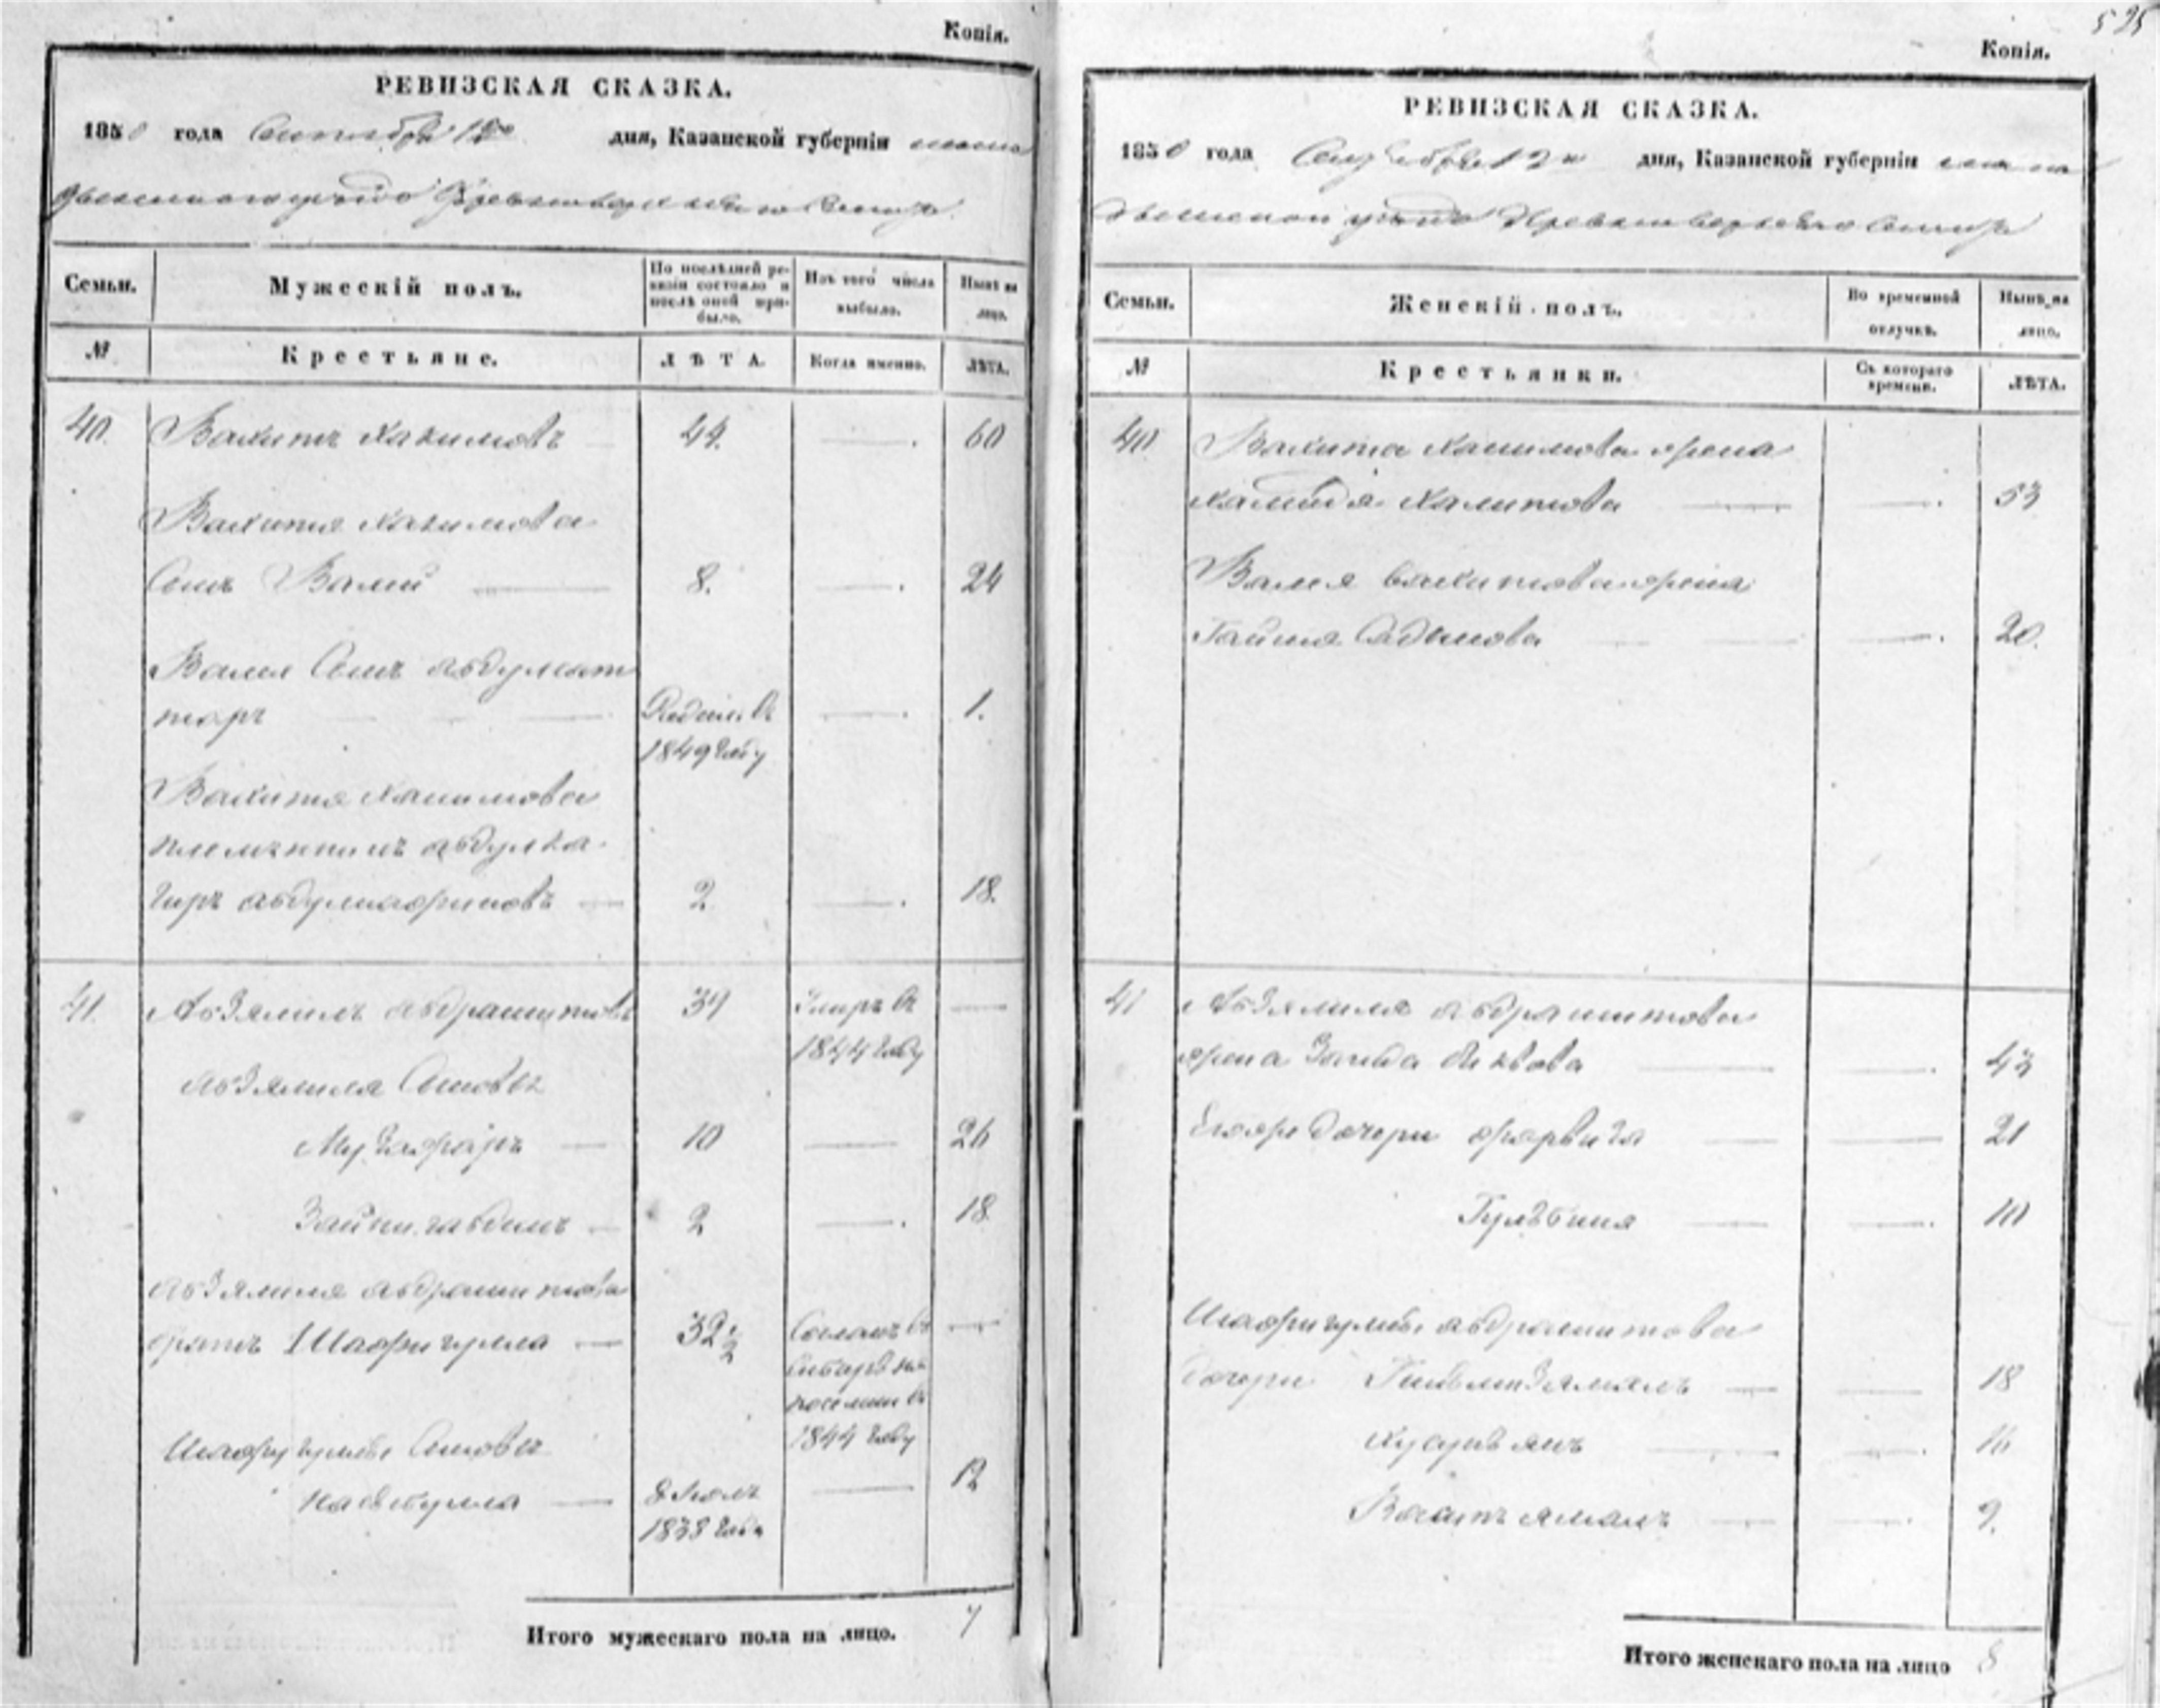 Копія.
РЕВИЗСКАЯ СКАЗКА.
1850 года Сентября 12го дня, Казанской губерніи
уѣзда
Семьи. Мужескій полъ. По послѣдней ревизіи состояло и послѣ оной прибыло. Изъ того числа выбыло. Нынѣ на лицо.
№ Крестьяне. ЛѢТА. Когда именно. ЛѢТА.
40. Вахитъ Хакимовъ 44. 60
Вахита Хакимова
Сынъ Валий 8. 24
Валия Сынъ абдулсат
таръ Родил. въ 1849 году 1.
Вахита Хакимова
племянникъ абдулка
гиръ 2 18.
41. Абзялилъ абдрашитовъ 39 Умеръ въ 1844 году
Абзялиля Сыновья
Музафаръ 10 26
Зайнигабдинъ 2 18
Абзялиля абдрашитова
братъ Шафигулла 32 1/2 Сосланъ въ Сибирь на поселение въ 1844 году
Шафигуллы Сыновья
Насибулла 1838 года 12
Итого мужескаго пола на лицо. 7
525
Копія.
РЕВИЗСКАЯ СКАЗКА.
1850 года Сентября 12го дня, Казанской губерніи
уѣзда
Семьи. Женскій полъ. Во временной отлучкѣ. Нынѣ на лицо.
№ Крестьянки. Съ котораго времени. ЛѢТА.
40 Вахита Хакимова жена
Халитова 53
Валия Вахитова жена
20.
41 Абзялиля абдрашитова
жена 43
Егоже дочери 21
10
Шафигуллы абдрашитова
дочери 18
16
9.
Итого женскаго пола на лицо 8